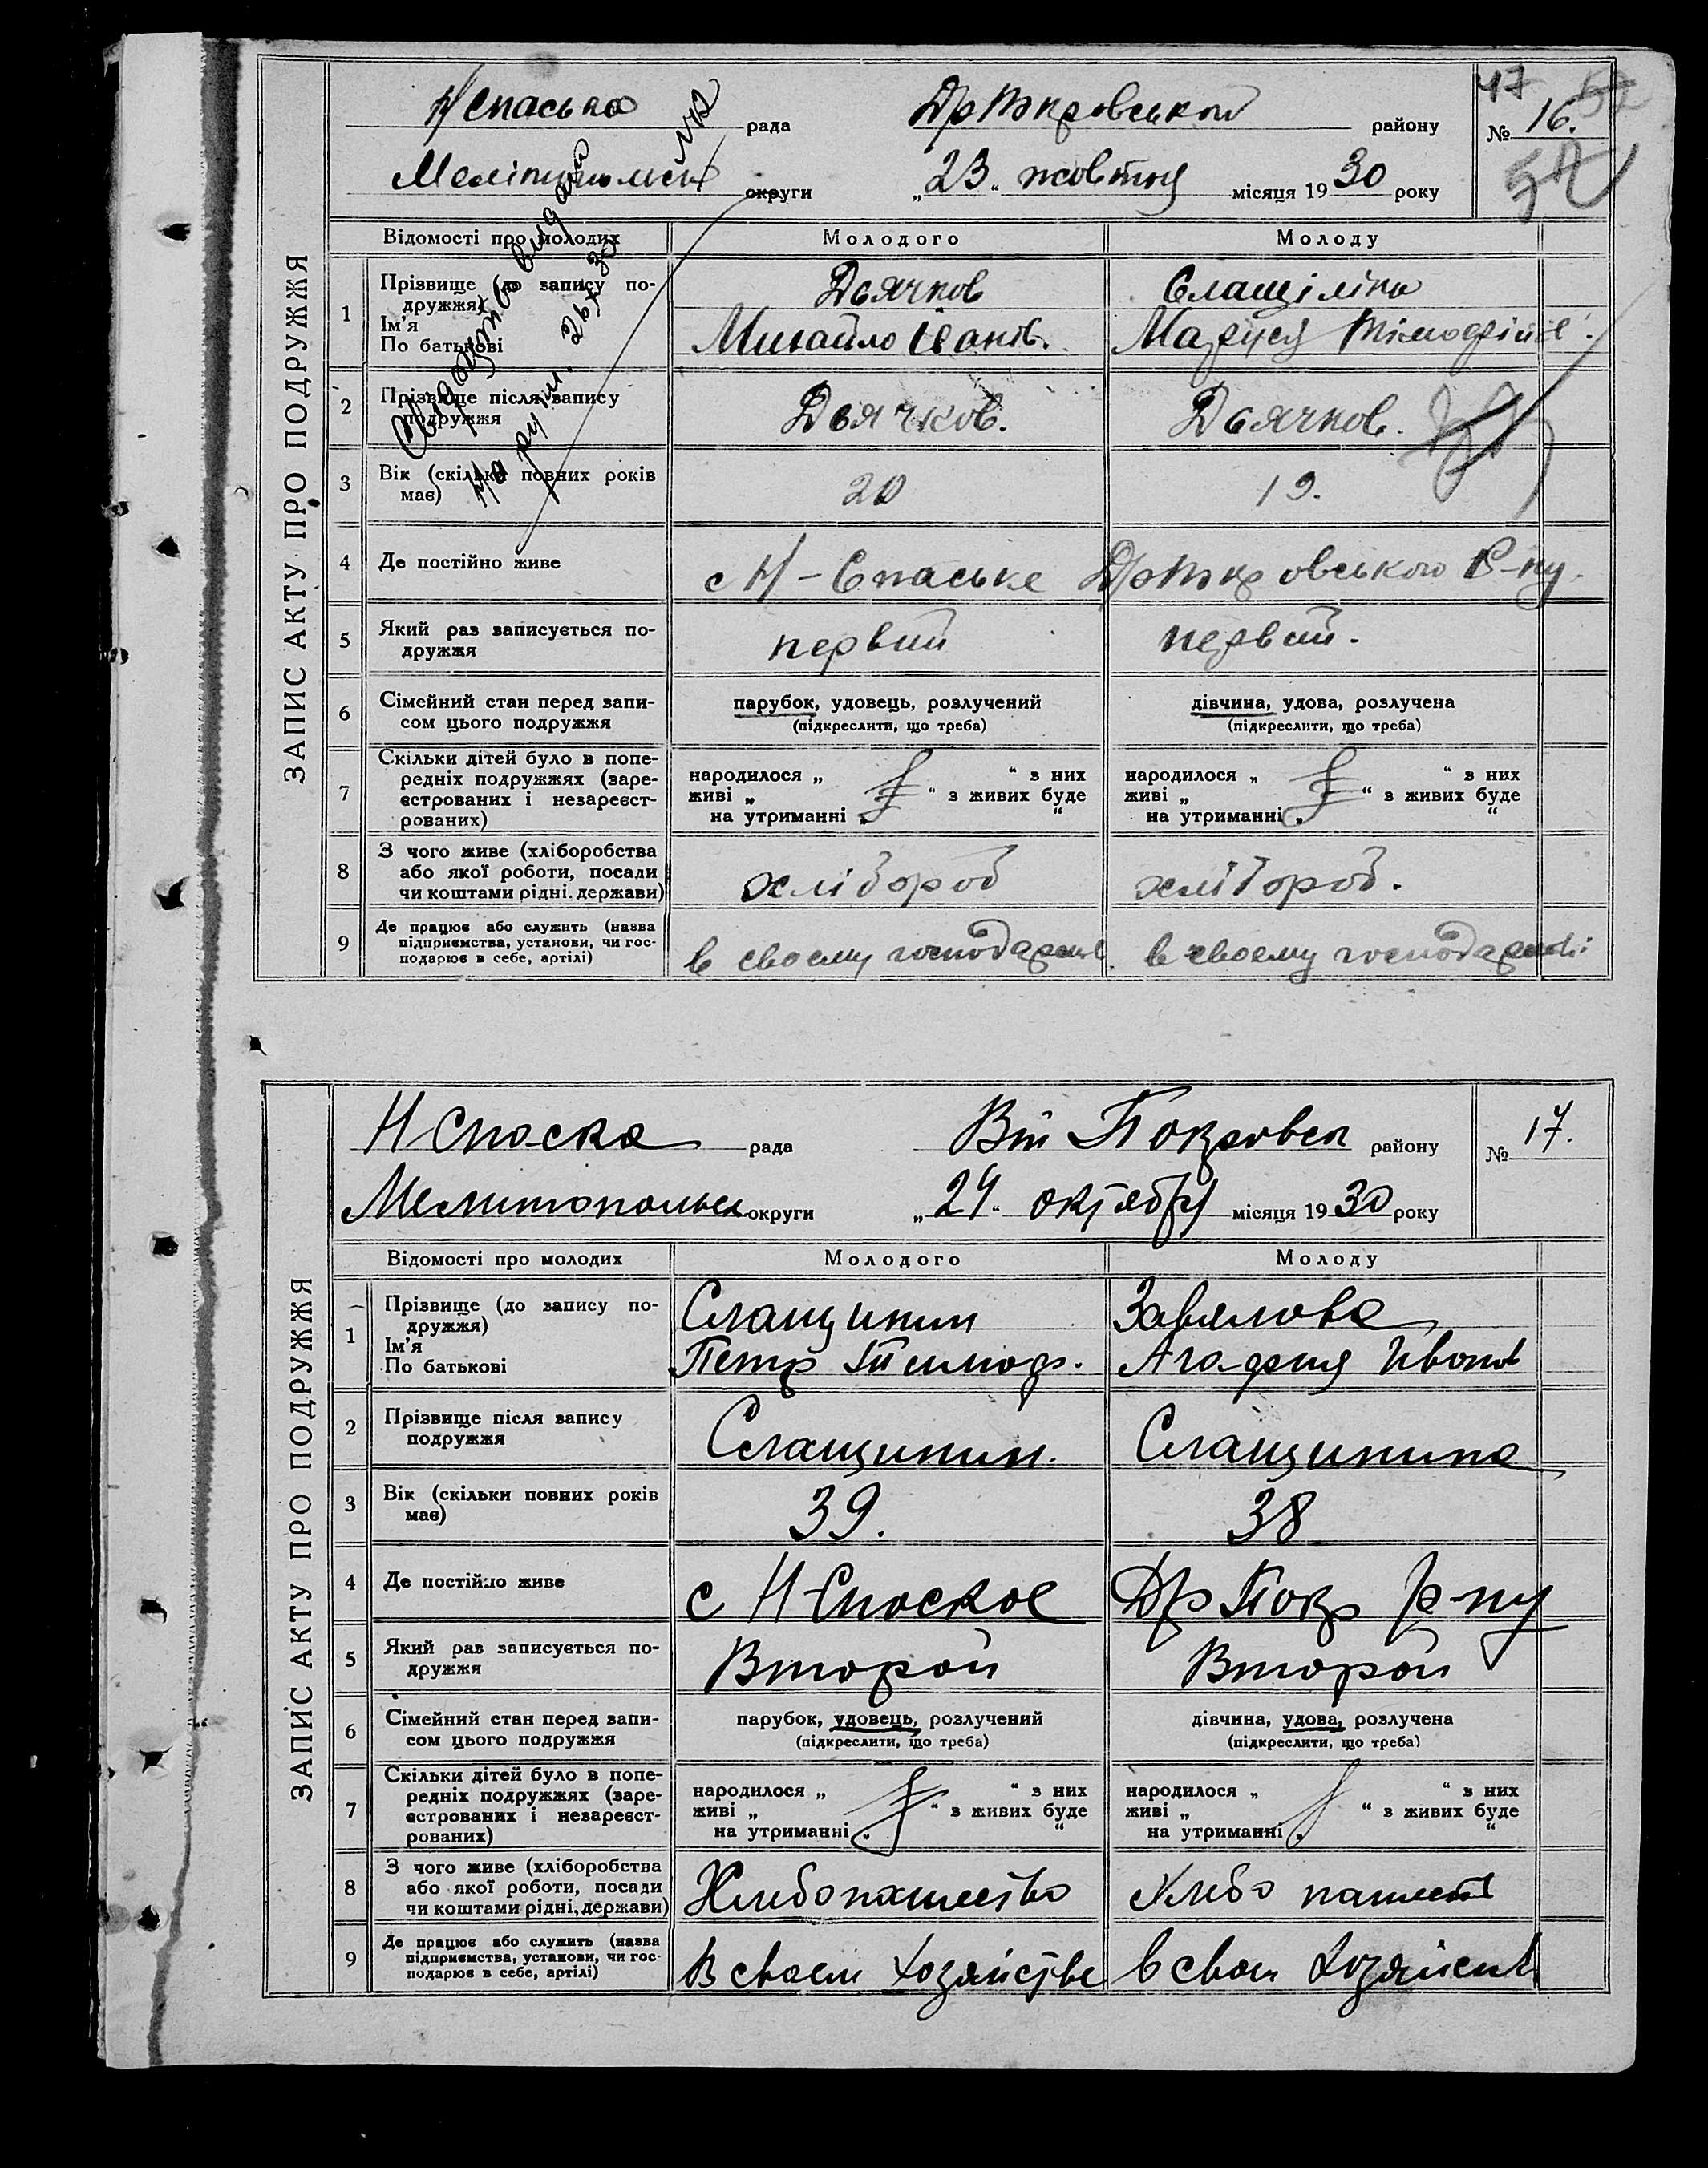 ЗАПИС АКТУ ПРО ПОДРУЖЖЯ
Н Спаська рада Др Покровський району № 16.
47
52
округи „23“ жовтня місяця 1930 року
Відомості про молодих Молодого Молоду
1 Прізвище (до запису по-
дружжя) Дьячков
Ім'я
По батькові Михайло Іванів. Маруся
2 Прізвище після запису
подружжя Дьячков. Дьячков.
3 Вік (скільки повних років
має) 20 19.
4 Де постійно живе с Н-Спаське Др Покровського Р-ну.
5 Який раз записується по-
дружжя первий первий.
6 Сімейний стан перед запи-
сом цього подружжя парубок, удовець, розлучений дівчина, удова, розлучена
(підкреслити, що треба) (підкреслити, що треба)
7 Скільки дітей було в попе-
редніх подружжях (заре-
єстрованих і незареєст-
рованих)
народилося „ “ з них народилося „ “ з них
живі „ “ з живих буде живі „ “ з живих буде
на утриманні „ “ на утриманні „ “
8 З чого живе (хліборобства
або якої роботи, посади
чи коштами рідні, держави) хлібороб хлібороб.
9 Де працює або служить (назва
підприємства, установи, чи гос-
подарює в себе, артілі) в своему в своему
ЗАПИС АКТУ ПРО ПОДРУЖЖЯ
Н Спаска рада Вт Покровск району № 17.
Мелитопольск округи „24“ октября місяця 1930 року
Відомості про молодих Молодого Молоду
1 Прізвище (до запису по-
дружжя) Слащинин Завялова
Ім'я
По батькові Петр Тимоф. Агафия Иванов
2 Прізвище після запису
подружжя Слащинин. Слащинина
3 Вік (скільки повних років
має) 39. 38
4 Де постійно живе с Н-Спаское Др Покр р-ну
5 Який раз записується по-
дружжя Второй Второй
6 Сімейний стан перед запи-
сом цього подружжя парубок, удовець, розлучений дівчина, удова, розлучена
(підкреслити, що треба) (підкреслити, що треба)
7 Скільки дітей було в попе-
редніх подружжях (заре-
єстрованих і незареєст-
рованих)
народилося „ “ з них народилося „ “ з них
живі „ “ з живих буде живі „ “ з живих буде
на утриманні „ “ на утриманні „ “
8 З чого живе (хліборобства
або якої роботи, посади
чи коштами рідні, держави) Хлебопашество Хлебо
9 Де працює або служить (назва
підприємства, установи, чи гос-
подарює в себе, артілі) В своем хозяйстве в своем